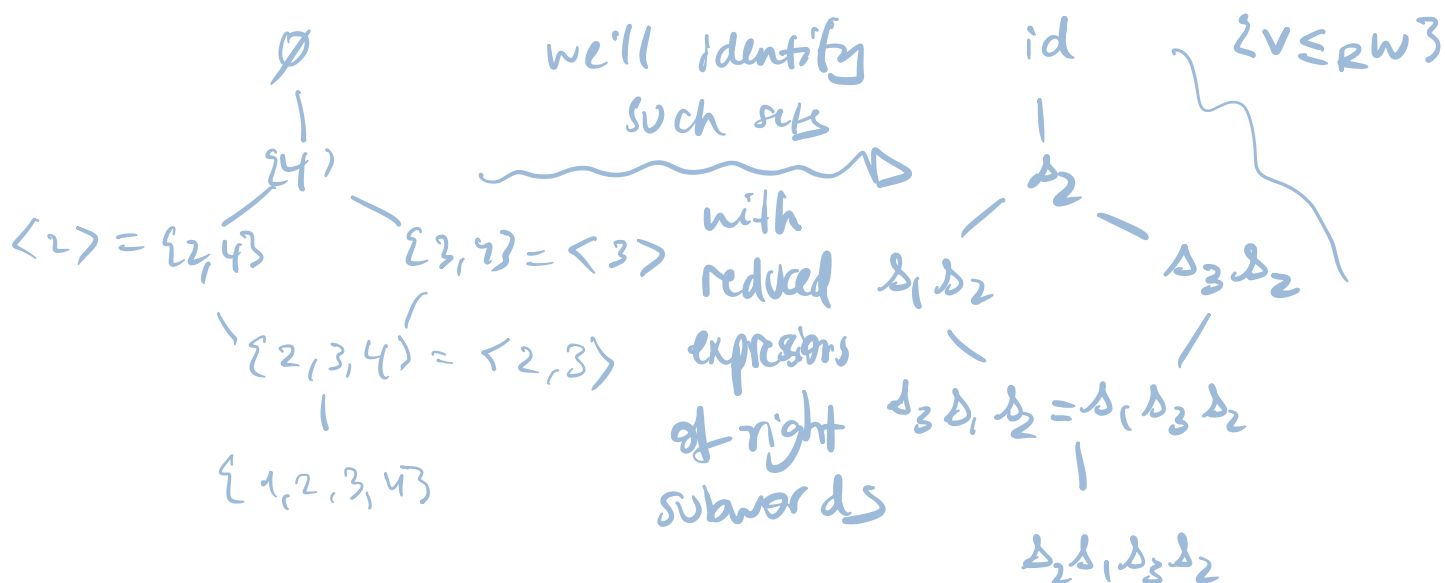 ∅
{4}
<2> = {2,4}
{3,4} = <3>
{2,3,4} = <2,3>
{1,2,3,4}
we'll identify
such sets
with
reduced
expresions
of right
subwords
id
{v ≤_R w}
s₂
s₁s₂
s₃s₂
s₃s₁s₂ = s₁s₃s₂
s₂s₁s₃s₂